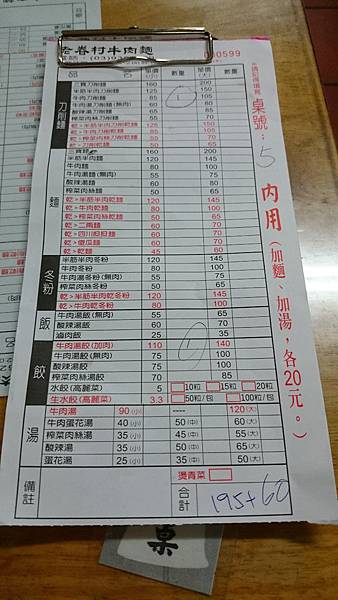 老眷村牛肉麵
品 名 單價(小) 數量 單價(大) 數量
刀削麵
三寶刀削麵 160 200
半筋半肉刀削麵 120 145
牛肉刀削麵 85 105
牛肉湯刀削麵(無肉) 60 80
酸辣湯刀削麵 65 85
榨菜肉絲刀削麵 65 85
乾>半筋半肉刀削乾麵 125 150
乾>牛肉刀削乾麵 85 105
乾>刀削乾麵 50 65
麵
三寶麵 160 200
半筋半肉麵 120 145
牛肉麵 80 100
牛肉湯麵(無肉) 55 75
酸辣湯麵 60 80
榨菜肉絲麵 60 80
乾>半筋半肉乾麵 120 145
乾>牛肉乾麵 80 100
乾>榨菜肉絲乾麵 50 65
乾>二兩麵 60 70
乾>四川擔擔麵 60 70
乾>傻瓜麵 60 70
乾>乾麵 45 60
冬粉
半筋半肉冬粉 120 145
牛肉冬粉 80 100
牛肉湯冬粉(無肉) 55 75
榨菜肉絲冬粉 60 80
乾>半筋半肉乾冬粉 120 145
乾>牛肉乾冬粉 80 100
飯
牛肉湯飯(無肉) 55 65
酸辣湯飯 60 70
滷肉飯 25 35
餃
牛肉湯餃(加肉) 110 140
牛肉湯餃(無肉) 75 100
酸辣湯餃 75 100
榨菜肉絲湯餃 70 85
水餃(高麗菜) 5 10粒 15粒 20粒
生水餃(高麗菜) 3.3 50粒/包 100粒/包
湯
牛肉湯 90(小) ---- 120(大)
牛肉蛋花湯 40(小) 50(中) 60(大)
榨菜肉絲湯 35(小) 45(中) 55(大)
酸辣湯 35(小) 50(中) 65(大)
蛋花湯 25(小) 35(中) 50(大)
備註
燙青菜
合計 195+60
桌號:5
內用(加麵、加湯,各20元。)
桌